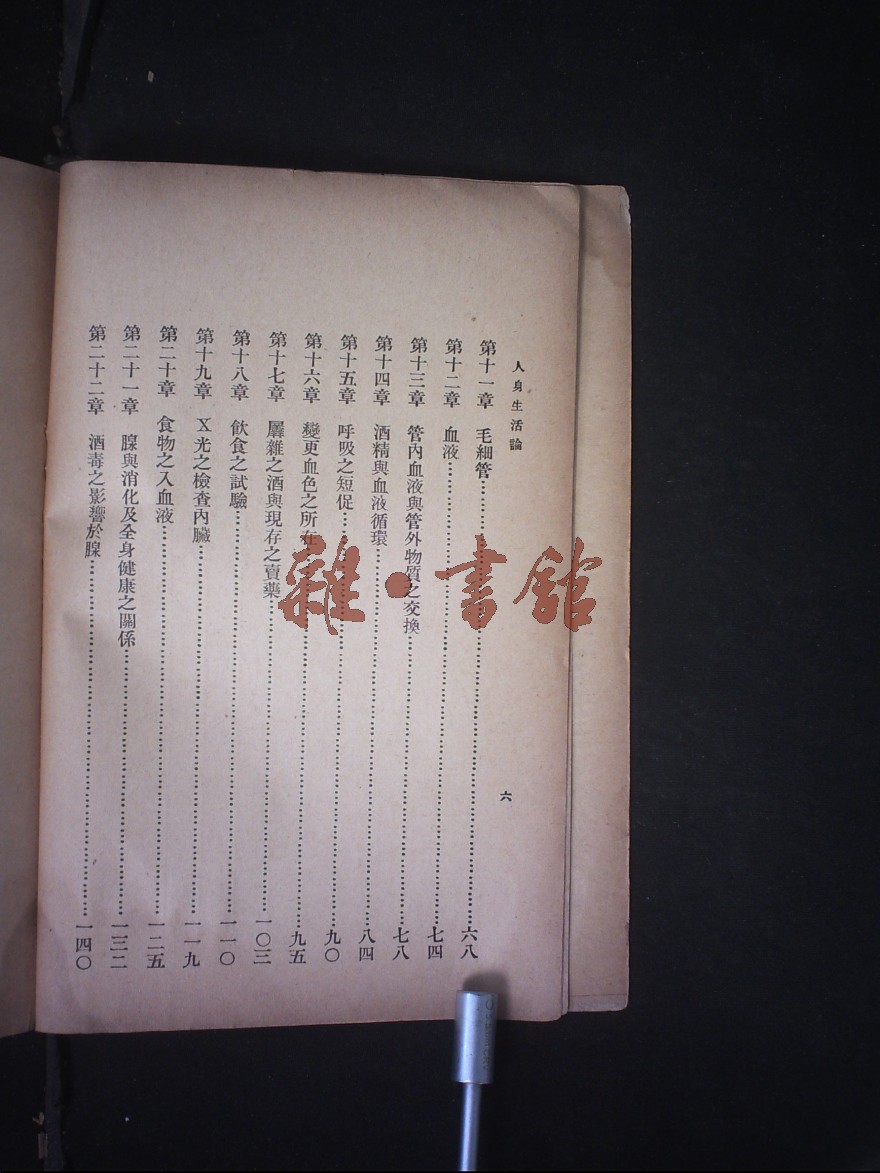 人身生活論
六
第十一章　毛細管……六八
第十二章　血液……七四
第十三章　管內血液與管外物質之交換……七八
第十四章　酒精與血液循環……八四
第十五章　呼吸之短促……九〇
第十六章　變更血色之所在……九五
第十七章　羼雜之酒與現存之賣藥……一〇三
第十八章　飲食之試驗……一一〇
第十九章　X光之檢查內臟……一一九
第二十章　食物之入血液……一二五
第二十一章　腺與消化及全身健康之關係……一三二
第二十二章　酒毒之影響於腺……一四〇
雜·書館